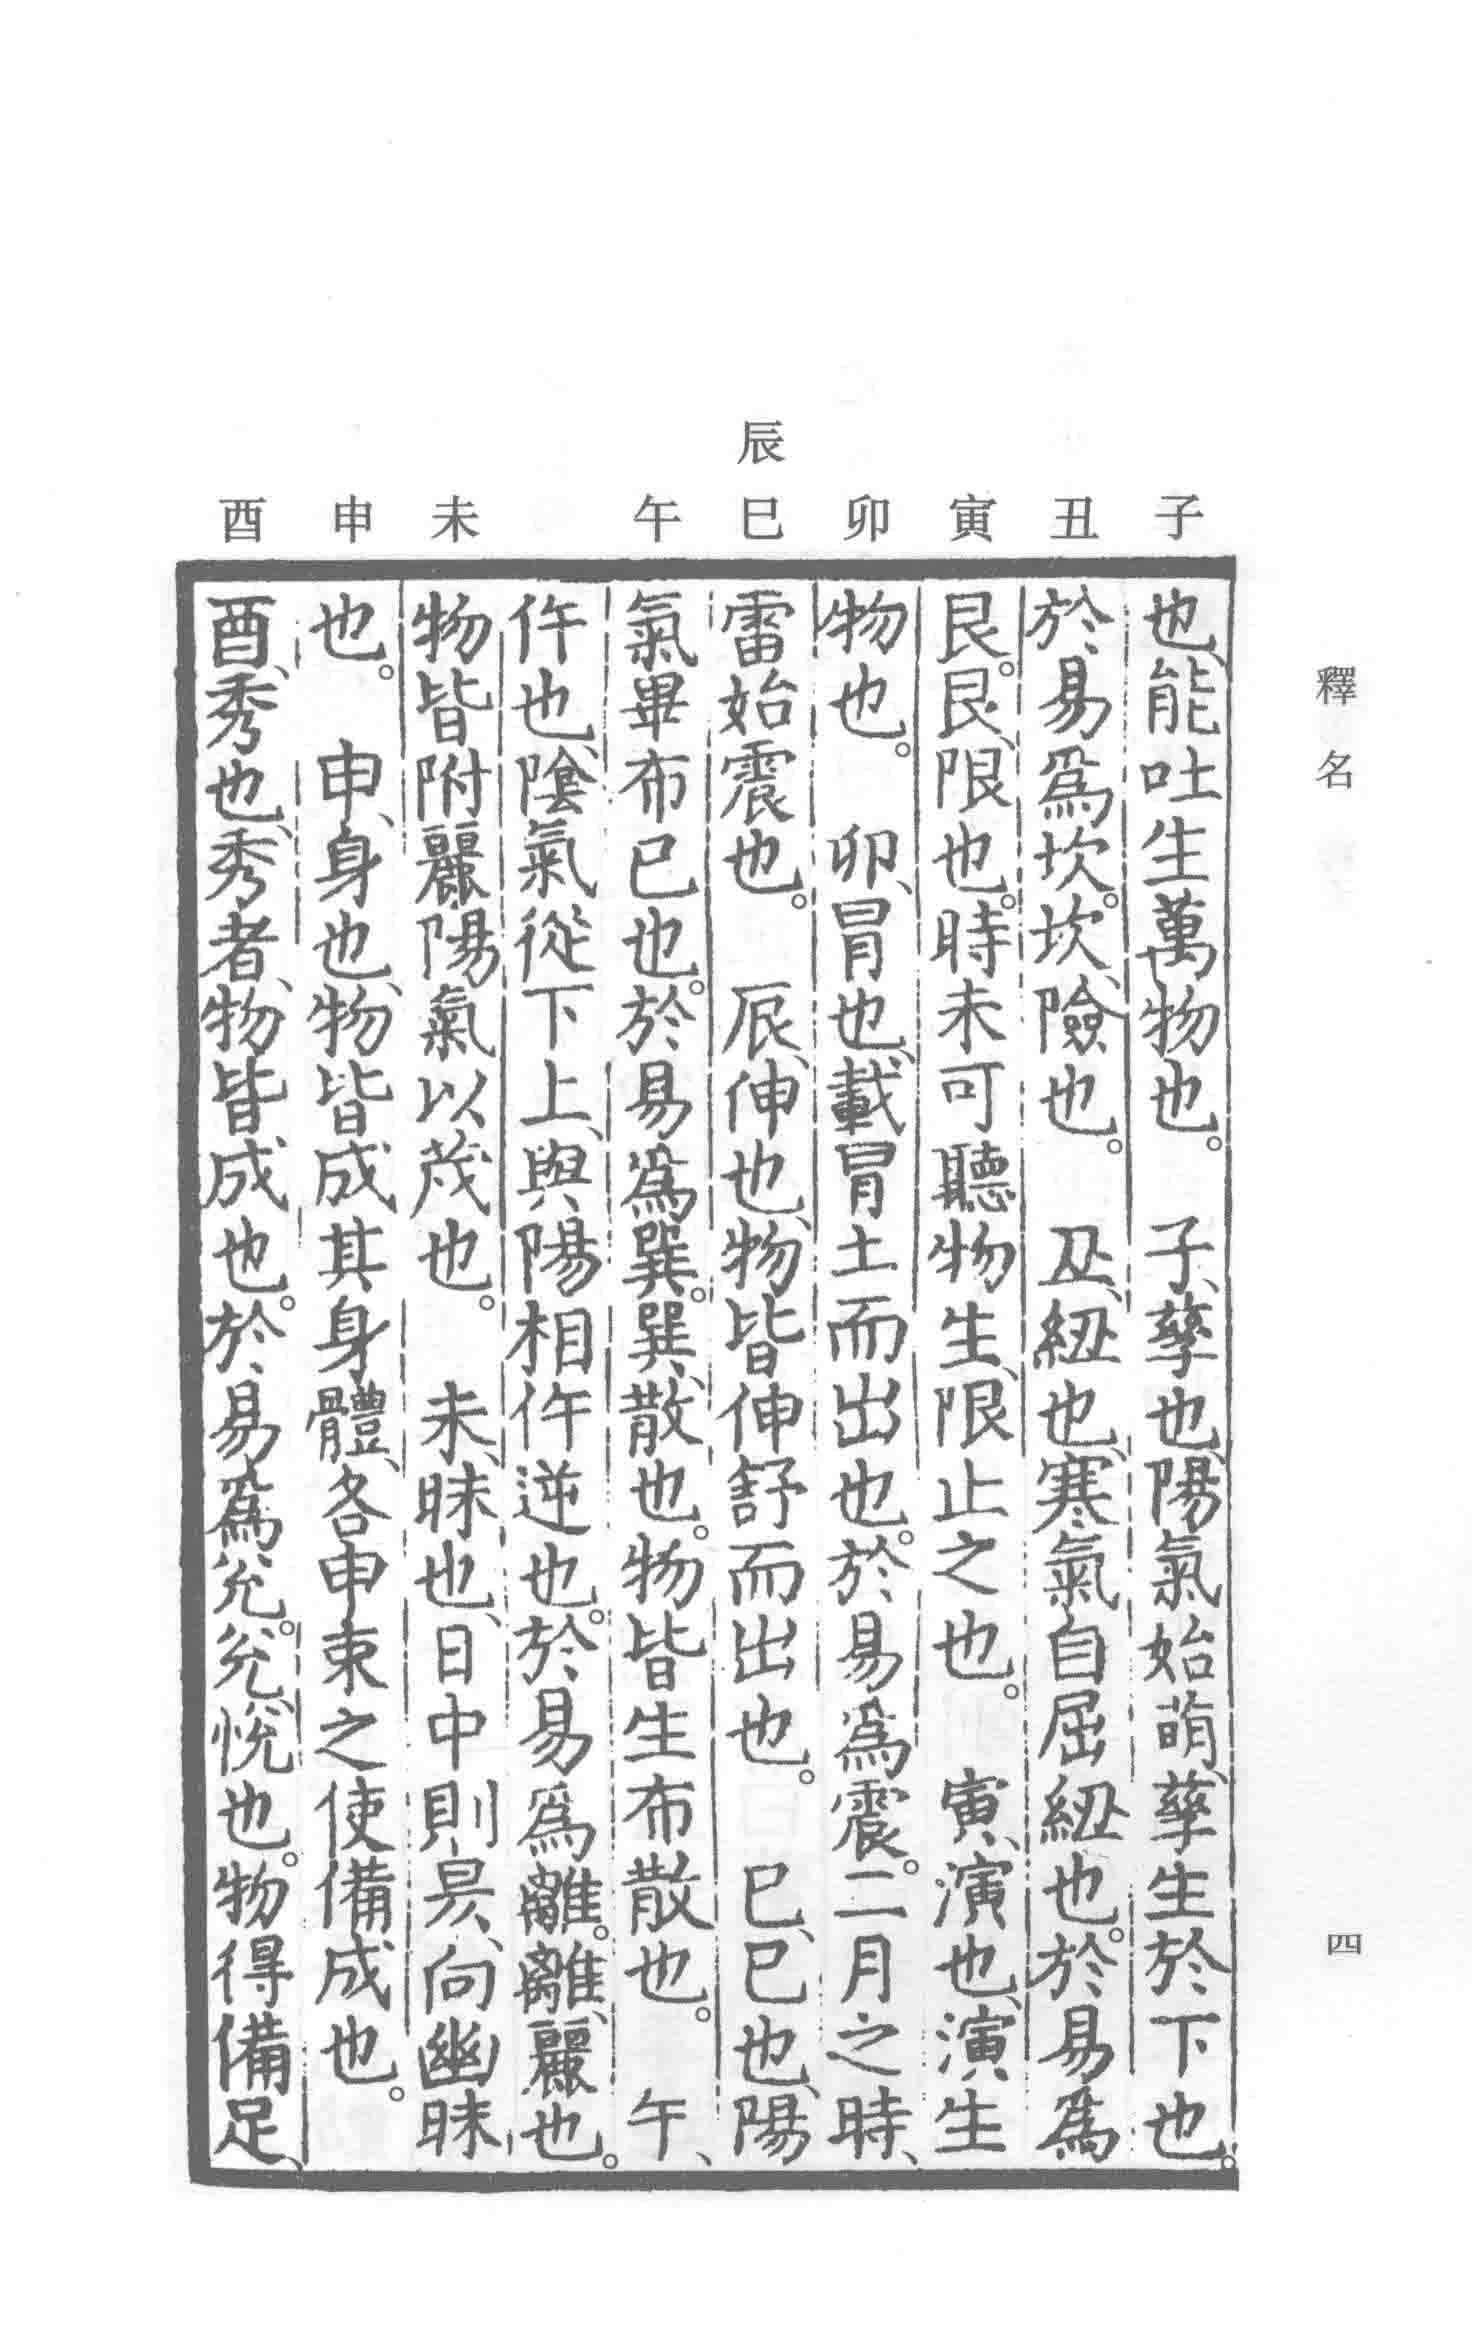 釋名
四
子
丑
寅
卯
辰
巳
午
未
申
酉
也、能吐生萬物也。　子、孳也、陽氣始萌、孳生於下也。
於易爲坎。坎、險也。　丑、紐也、寒氣自屈紐也。於易爲
艮。艮、限也。時未可聽物生、限止之也。　寅、演也、演生
物也。　卯、冒也、載冒土而出也。於易爲震。二月之時、
雷始震也。　辰、伸也、物皆伸舒而出也。　巳、已也、陽
氣畢布已也。於易爲巽。巽、散也。物皆生布散也。　午、
仵也、陰氣從下上、與陽相仵逆也。於易爲離。離、麗也。
物皆附麗陽氣以茂也。　未、昧也、日中則昃、向幽昧
也。　申、身也、物皆成其身體、各申束之使備成也。
酉、秀也、秀者、物皆成也。於易爲兌。兌、悅也。物得備足、